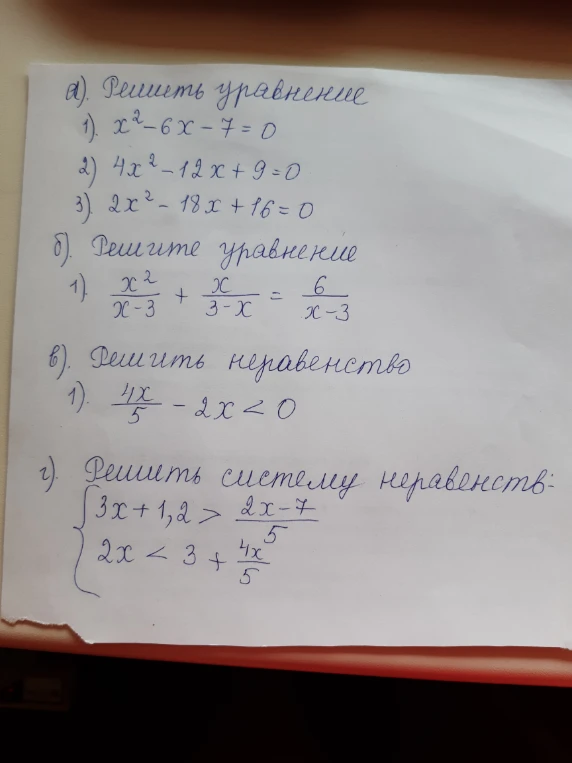 а). Решить уравнение
1). x² – 6x – 7 = 0
2) 4x² – 12x + 9 = 0
3) 2x² – 18x + 16 = 0
б). Решите уравнение
1) x²/(x-3) + x/(3-x) = 6/(x-3)
в). Решить неравенство
1). 4x/5 – 2x < 0
г). Решить систему неравенств:
{3x + 1,2 > (2x-7)/5
2x < 3 + 4x/5